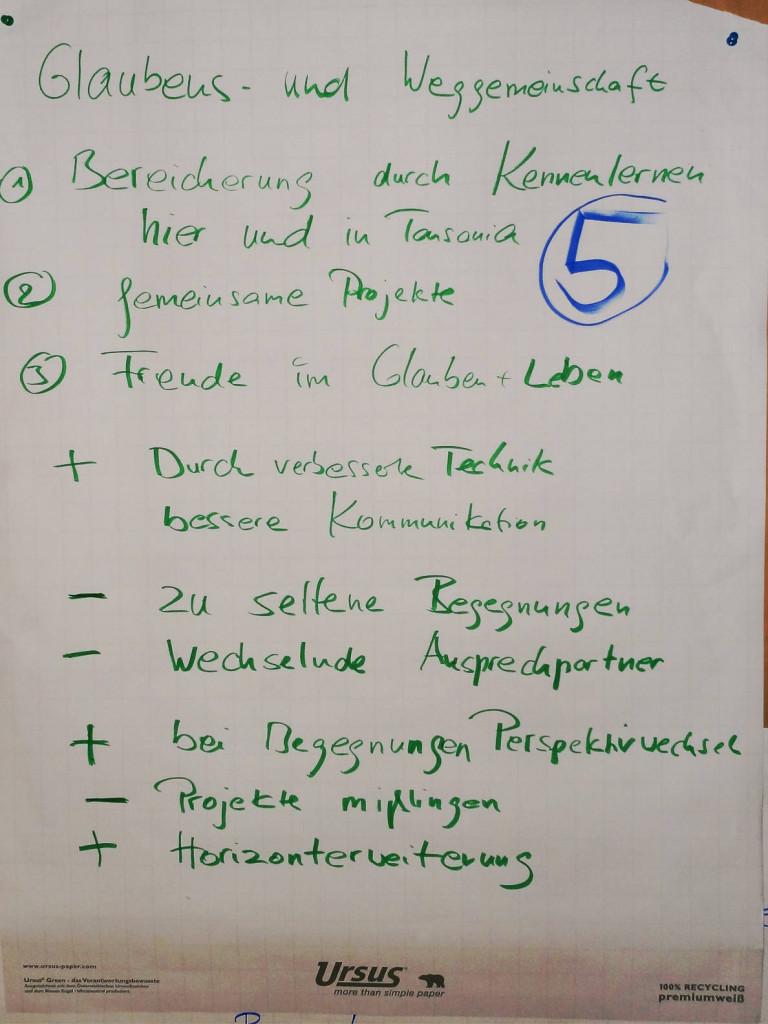 Glaubens- und Weggemeinschaft
① Bereicherung durch Kennenlernen
hier und in Tansania
5
② gemeinsame Projekte
③ Freude im Glauben + Leben
+ Durch verbesserte Technik
bessere Kommunikation
− zu seltene Begegnungen
− Wechselnde Ansprechpartner
+ bei Begegnungen Perspektivwechsel
− Projekte mißlingen
+ Horizonterweiterung
www.ursus-paper.com
Ursus® Green - das Verantwortungsbewusste
URSUS
more than simple paper
100% RECYCLING
premiumweiß